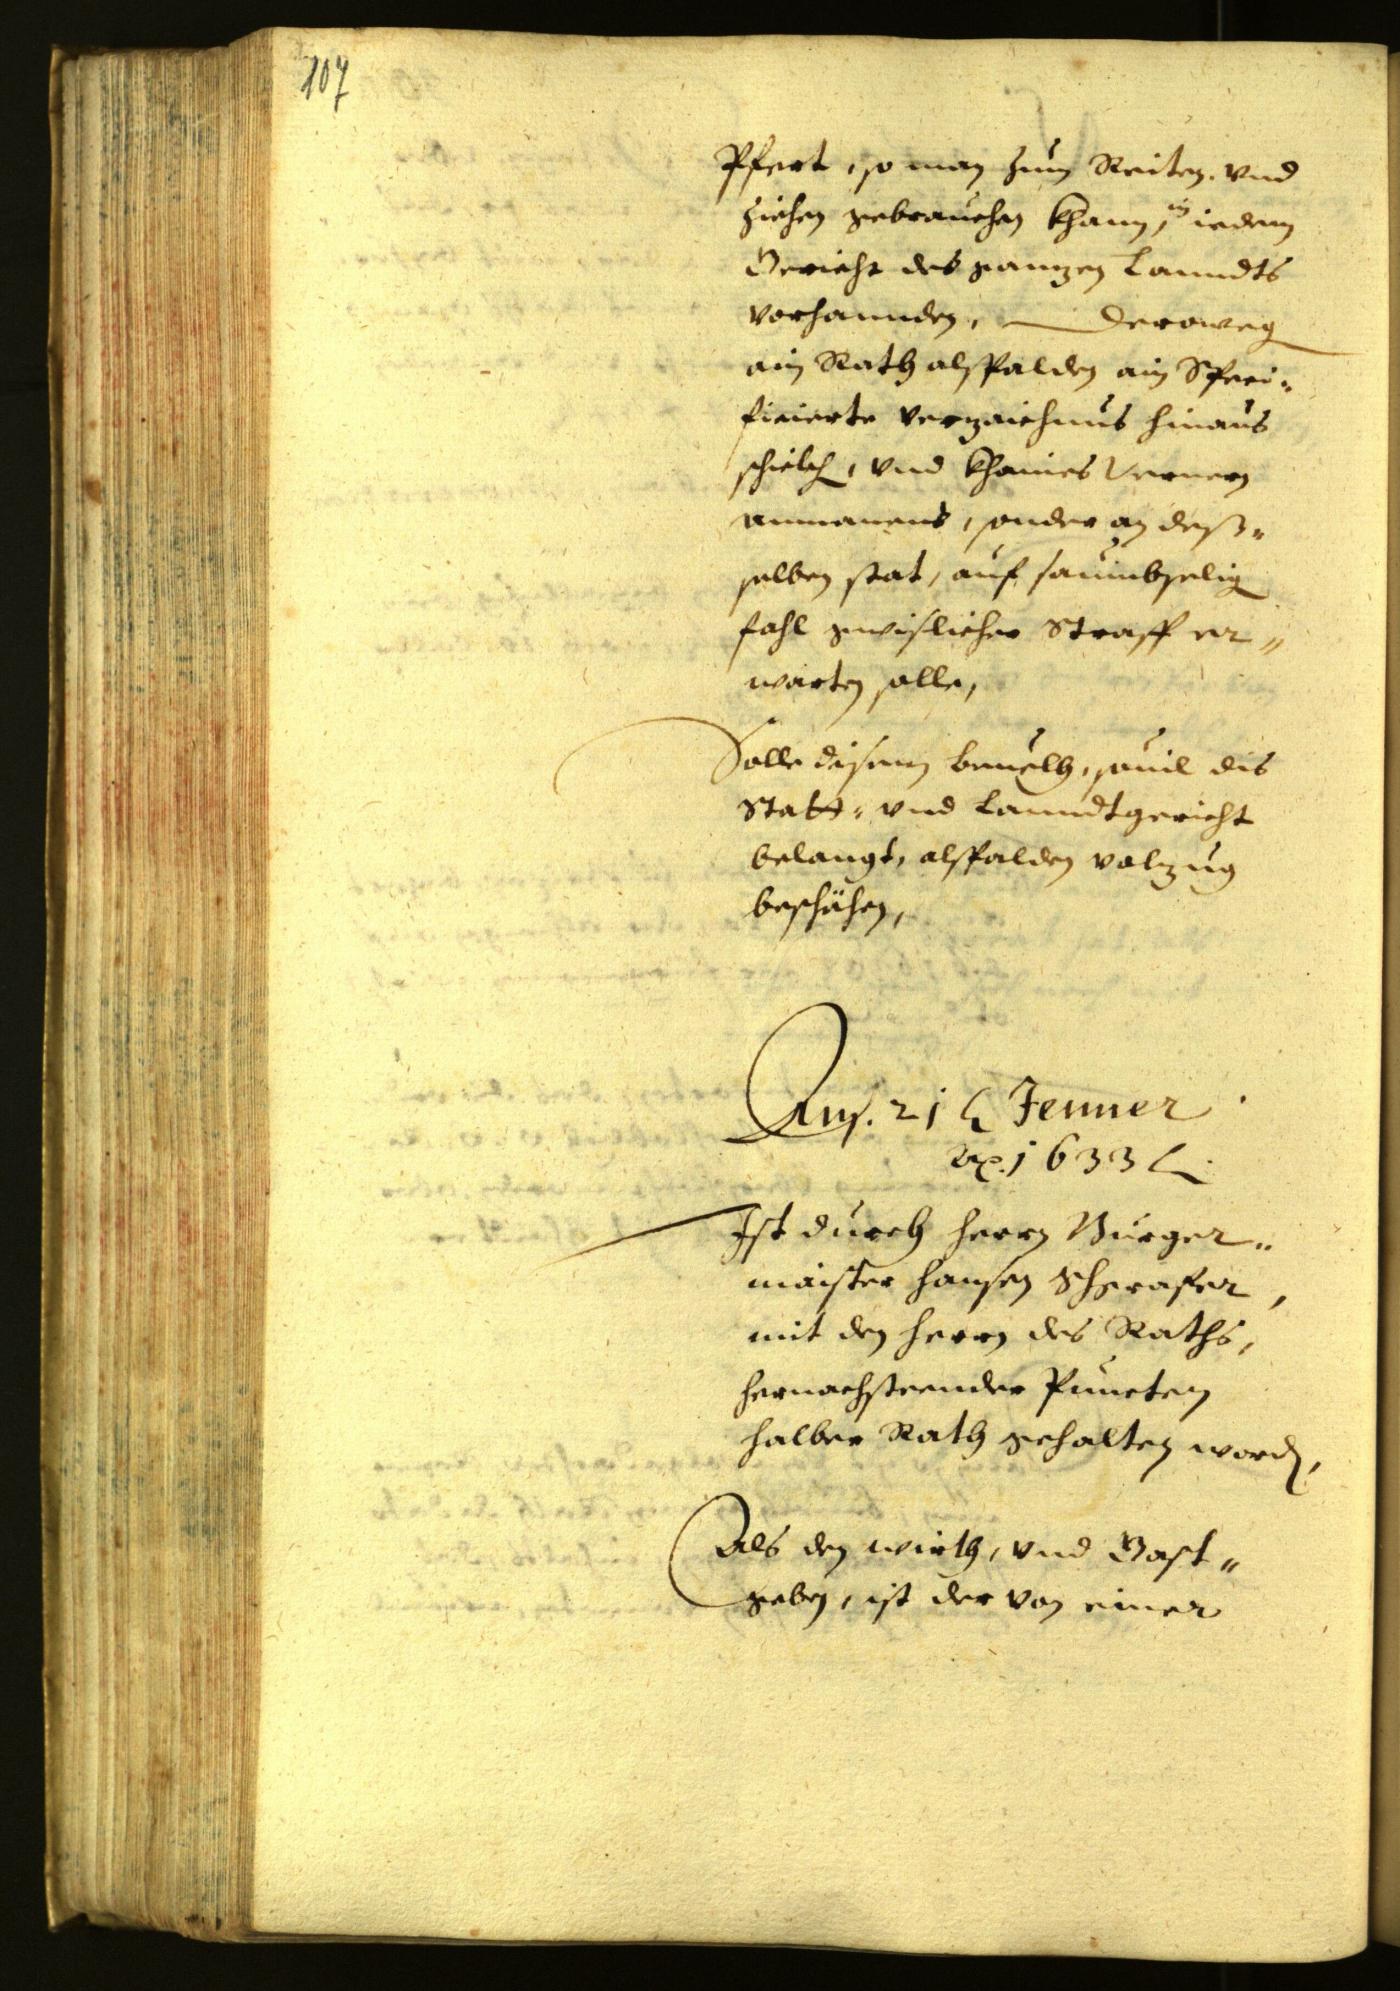 107
Pfert, so man zum Reiten. vnd
ziehen gebrauchen khann, in iedem
Gericht des ganzen Lanndts
verhannden, Deroweg
ain Rath alspalden ain Speci„
ficierte verzaichnus hinaus
schickh, vnd khaines vernern
anmanens, sonder an deß„
selben stat, auf saumbselig
fahl gwislicher Straff er„
warten solle,
Solle disem beuelh, souil dis
Statt„ vnd Lanndtgericht
belangt, alspalden volzug
beschähen,
Auf. 21 Jenner
Ao. 1633
Ist durch herrn Burger„
maister hansen Schgrafer,
mit den herrn des Raths,
hernachsteender Puncten
halber Rath gehalten worden,
Als den wirth, vnd Gast„
geben, ist der von einer